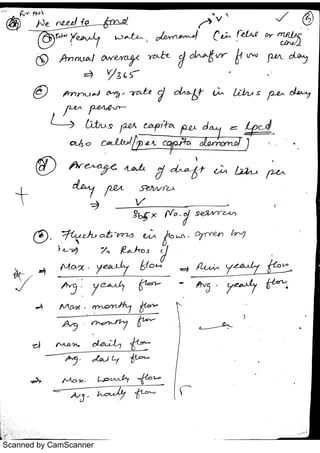 For this
We need to find
"V"
(a) Total Yearly water demand (in litres or million
litres)
(b) Annual average rate of draft per day
⇒ V/365
(c) Annual avg. rate of draft in litres per day
per person
↳ litres per capita per day = lpcd
also called [per capita demand]
(d) Average rate of draft in litres per
day per service
⇒ V
365 x No. of services
(e). Fluctuations in flows. given in
% Ratios of
→ Max. yearly flow ⇒ Min yearly flow
Avg. yearly flow - Avg. yearly flow
→ Max. monthly flow
Avg. monthly flow
⇒ Max. daily flow
Avg. daily flow
→ Max. hourly flow
Avg. hourly flow
Scanned by CamScanner